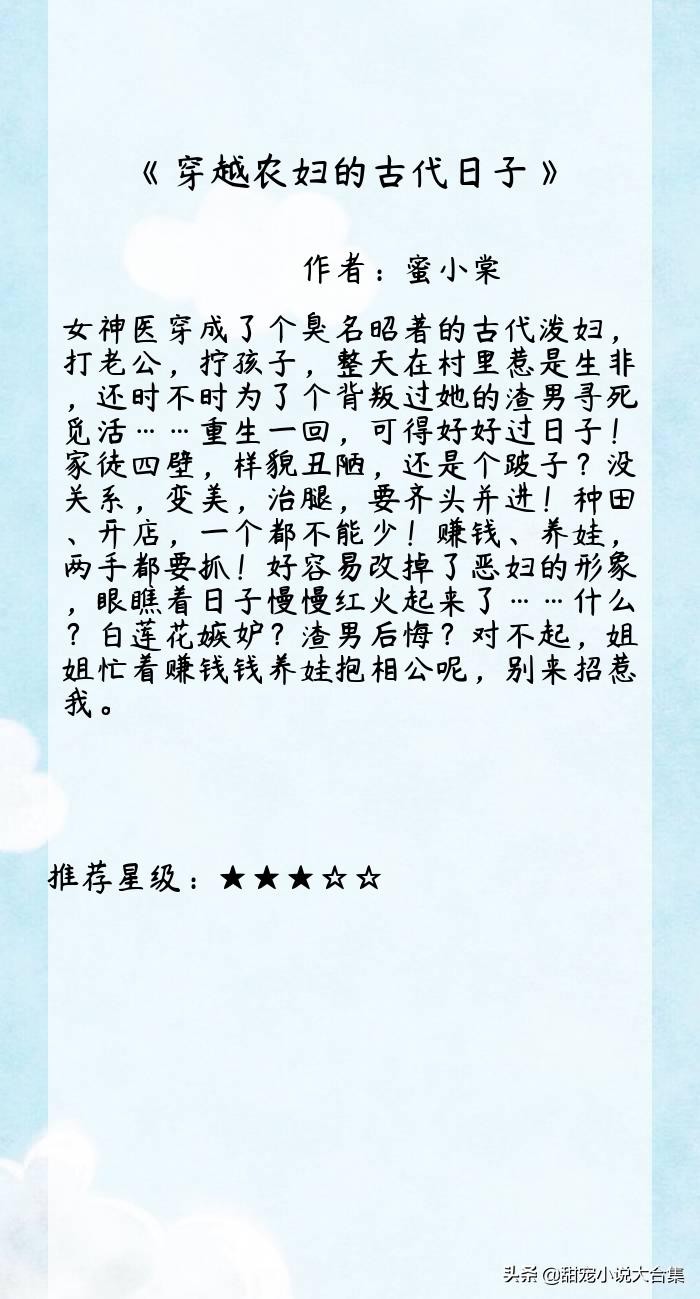 《穿越农妇的古代日子》
作者：蜜小棠
女神医穿成了个臭名昭著的古代泼妇，
打老公，拧孩子，整天在村里惹是生非
，还时不时为了个背叛过她的渣男寻死
觅活……重生一回，可得好好过日子！
家徒四壁，样貌丑陋，还是个跛子？没
关系，变美，治腿，要齐头并进！种田
、开店，一个都不能少！赚钱、养娃，
两手都要抓！好容易改掉了恶妇的形象
，眼瞧着日子慢慢红火起来了……什么
？白莲花嫉妒？渣男后悔？对不起，姐
姐忙着赚钱钱养娃抱相公呢，别来招惹
我。
推荐星级：★★★☆☆
头条 @甜宠小说大合集